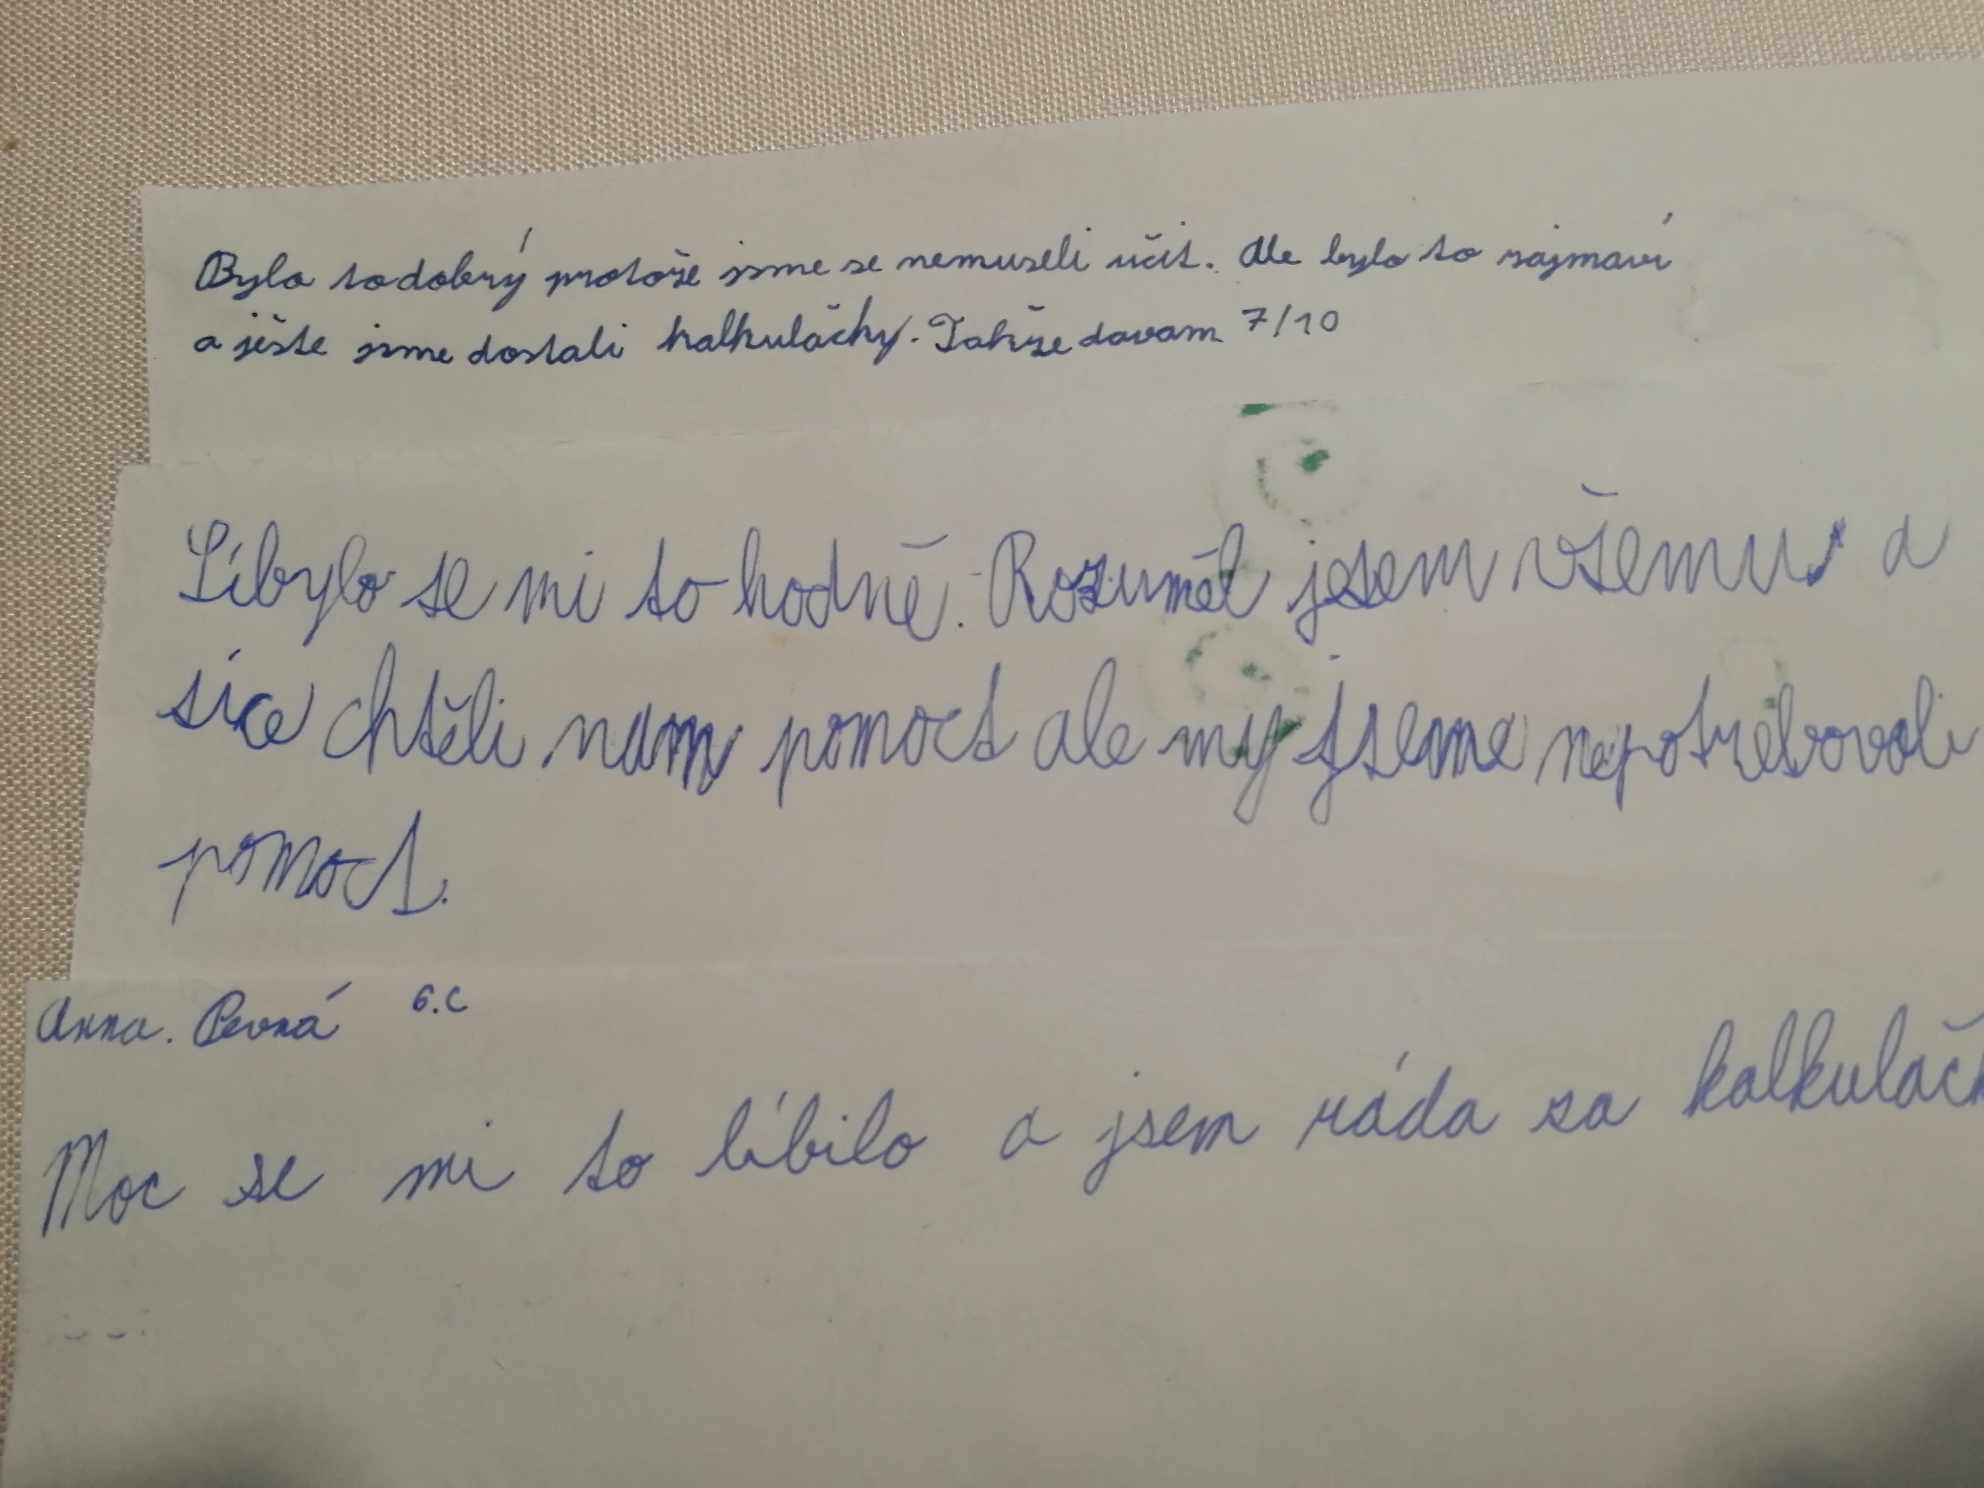 Bylo to dobrý protože jsme se nemuseli učit. Ale bylo to zajmaví
a ješte jsme dostali kalkulačky. Takže davam 7/10
Líbylo se mi to hodně. Rozuměl jsem všemu a
síce chtěli nam pomoct ale my jseme nepotřebovali
pomoct.
Anna. Pevná 6.C
Moc se mi to líbilo a jsem ráda za kalkulačk